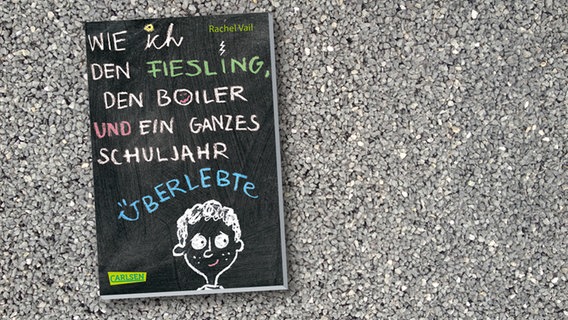 Rachel Vail
WIE ich
DEN FIESLING,
DEN BOILER
UND EIN GANZES
SCHULJAHR
ÜBERLEBTe
CARLSEN